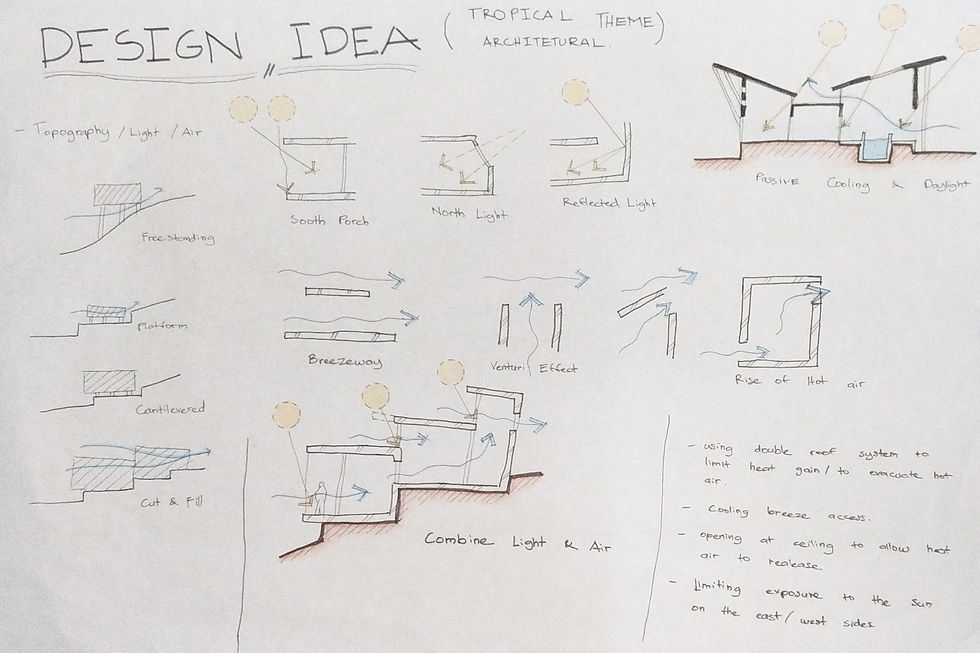 DESIGN IDEA
( TROPICAL THEME )
ARCHITETURAL.
- Topography / Light / Air
South Porch
North Light
Reflected Light
Passive Cooling & Daylight
Free standing
Platform
Cantilevered
Cut & Fill
Breezeway
Venturi Effect
Rise of Hot air
Combine Light & Air
- using double roof system to
limit heat gain / to evacuate hot
air.
- Cooling breeze access.
- opening at ceiling to allow heat
air to realease
- Limiting exposure to the sun
on the east / west sides